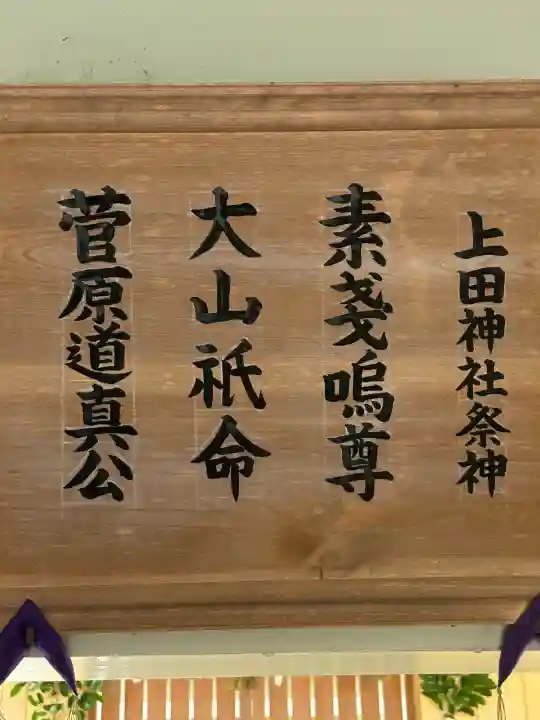 上田神社祭神
素戔嗚尊
大山祇命
菅原道真公